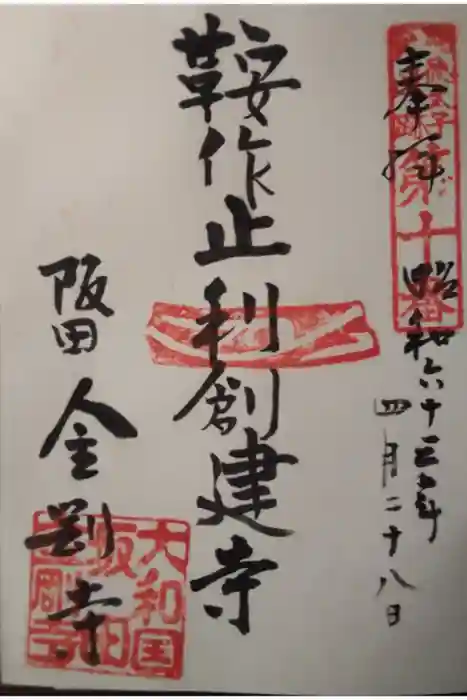 奉拝
第十番
昭和六十三年
四月二十八日
鞍作止利創建寺
阪田
金剛寺
大和国
阪田
金剛寺